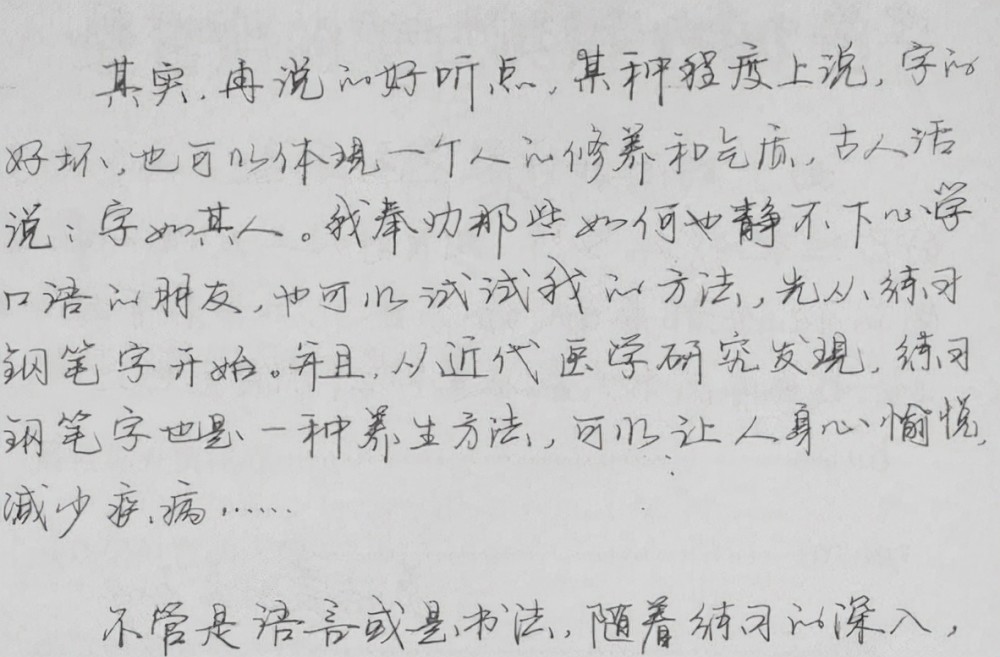 其实，再说的好听点，某种程度上说，字的
好坏，也可以体现一个人的修养和气质，古人话
说：字如其人。我奉劝那些如何也静不下心学
口语的朋友，也可以试试我的方法，先从练习
钢笔字开始。并且，从近代医学研究发现，练习
钢笔字也是一种养生方法，可以让人身心愉悦，
减少疾病……
不管是语言或是书法，随着练习的深入，